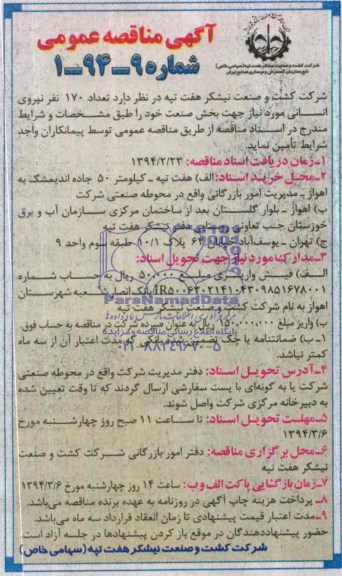 شرکت کشت و صنعت نیشکر هفت تپه (سهامی خاص)
آگهی مناقصه عمومی
شماره ۹-۹۴-۱
شرکت کشت و صنعت نیشکر هفت تپه در نظر دارد تعداد ۱۷۰ نفر نیروی
انسانی مورد نیاز جهت بخش صنعت خود را طبق مشخصات و شرایط
مندرج در اسناد مناقصه از طریق مناقصه عمومی توسط پیمانکاران واجد
شرایط تأمین نماید.
۱-زمان دریافت اسناد مناقصه: ۱۳۹۴/۲/۲۳
۲-محل خرید اسناد: الف) هفت تپه - کیلومتر ۵۰ جاده اندیمشک به
اهواز - مدیریت امور بازرگانی واقع در محوطه صنعتی شرکت
ب) اهواز - بلوار گلستان بعد از ساختمان مرکزی سازمان آب و برق
خوزستان جنب تعاونی روستایی دفتر نیشکر هفت تپه
ج) تهران - یوسف‌آباد پلاک ۱۰/۱ طبقه سوم واحد ۹
۳-مدارک مورد نیاز جهت تحویل اسناد:
الف) فیش واریزی مبلغ ۵۰۰/۰۰۰ ریال به حساب شماره
بانک شعبه شهرستان
اهواز به نام شرکت کشت و صنعت نیشکر هفت تپه
ب) واریز مبلغ ریال به عنوان سپرده شرکت در مناقصه به حساب فوق
۱-ب) ضمانتنامه یا چک تضمینی بانکی که مدت اعتبار آن از سه ماه
کمتر نباشد.
ParsNamadData
پایگاه اطلاع رسانی مناقصه و مزایده
۰۲۱-۸۸۳۴۹۶۷۰-۵
۴-آدرس تحویل اسناد: دفتر مدیریت شرکت واقع در محوطه صنعتی
شرکت یا به گونه‌ای با پست سفارشی ارسال گردند که تا وقت تعیین شده
به دبیرخانه مرکزی شرکت واصل شوند.
۵-مهلت تحویل اسناد: تا ساعت ۱۱ صبح روز چهارشنبه مورخ
۱۳۹۴/۳/۶
۶-محل برگزاری مناقصه: دفتر امور بازرگانی شرکت کشت و صنعت
نیشکر هفت تپه
۷-زمان بازگشایی پاکت الف و ب: ساعت ۱۴ روز چهارشنبه مورخ ۱۳۹۴/۳/۶
۸-پرداخت هزینه چاپ آگهی در روزنامه به عهده برنده مناقصه می‌باشد.
۹-مدت اعتبار قیمت پیشنهادی تا زمان انعقاد قرارداد سه ماه می‌باشد.
حضور پیشنهاددهندگان در موقع باز کردن پیشنهادها در جلسه آزاد است.
شرکت کشت و صنعت نیشکر هفت تپه (سهامی خاص)